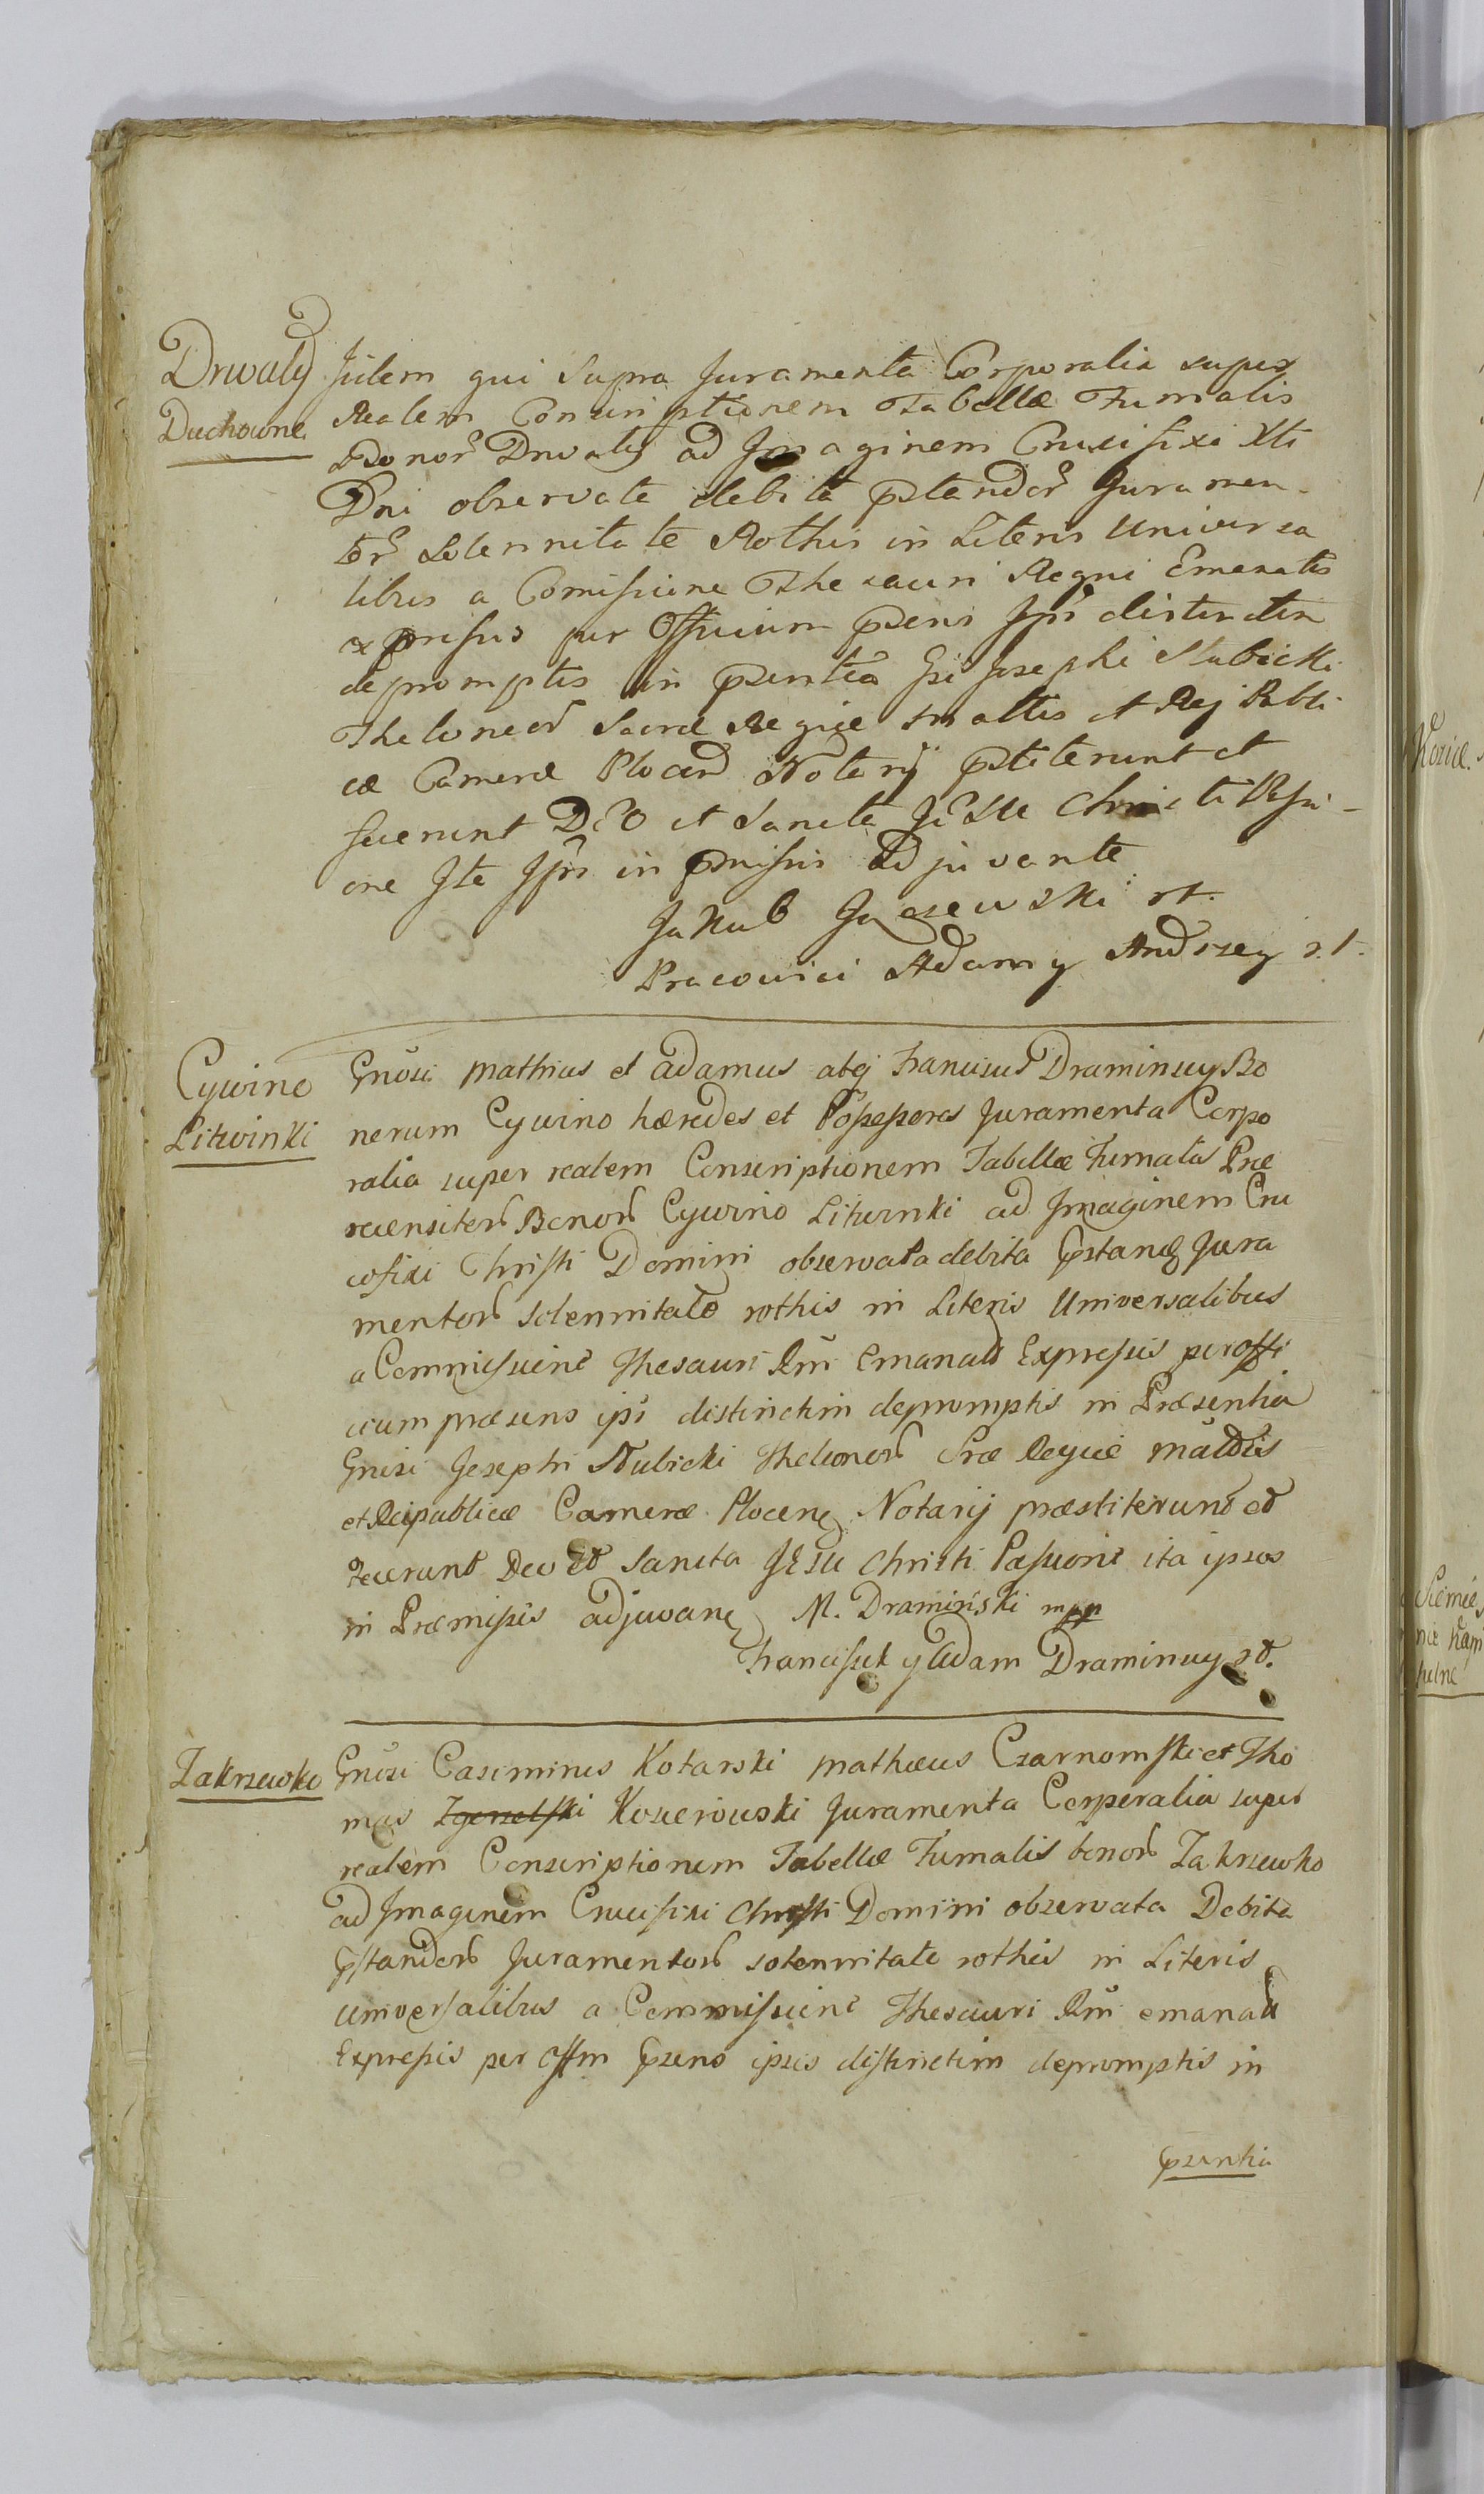 Drwały
Duchowne
Iidem qui Supra Juramenta Corporalia super
Realem Conscriptionem Tabellæ Fumalis
Bonor̃ Drwały ad Imaginem Crucifixi Xti
Dni observata debita pstandor̃ Juramen-
tor̃ Solennitate Rothis in Literis Universa
libus a Comissione Thesauri Regni Emanatis
expressis per Officium psens Ipsis distinctim
depromptis in psentia Gsi Josephi Słubicki
Theloneor̃ Sacræ Regiæ Mattis et Rej Publi
cæ Cameræ Plocen Notarij pstiterunt et
fecerunt DEO et Sancta JESU Christi Passi-
one Ita Ipsis in pmissis Adjuvante
Jakub Jaczewski st.
Pracowici Adam y Andrzey s.t.
Cywino
Litwinki
Gnosi Mathias et Adamus atq Franciscus Draminscy Bo
norum Cywino hæredes et Possessores Juramenta Corpo
ralia super realem Conscriptionem Tabellæ Fumalis Præ
recensitor̃ Bonor̃ Cywino Litwinki ad Imaginem Cru
cifixi Christi Domini observata debita pstand Jura
mentor̃ Solennitate rothis in Literis Universalibus
a Commissione Thesauri Rni Emanatis Expressis per offi
cium præsens ipsis distinctim depromptis in Præsentia
Gnosi Josephi Słubicki Theloneor̃ Sræ Regiæ Mattis
et Reipublicæ Cameræ Plocens Notarij præstiterunt et
fecerunt Deo et Sancta JESU Christi Passione ita ipsos
in Præmissis adjuvan M. Dramiński mpp
Franciszek y Adam Draminscy st.
Zakrzewko
Gnosi Casimirus Kotarski Mathæus Czarnomski et Tho
mas Zgorzelski Kosicrowski Juramenta Corporalia super
realem Conscriptionem Tabellæ Fumalis bonor̃ Zakrzewko
ad Imaginem Crucifixi Christi Domini observata Debita
pstandor̃ Juramentor̃ solennitate rothis in Literis
universalibus a Commissione Thesauri Rni emanatis
Expressis per Offm psens ipsis distinctim depromptis in
psentia